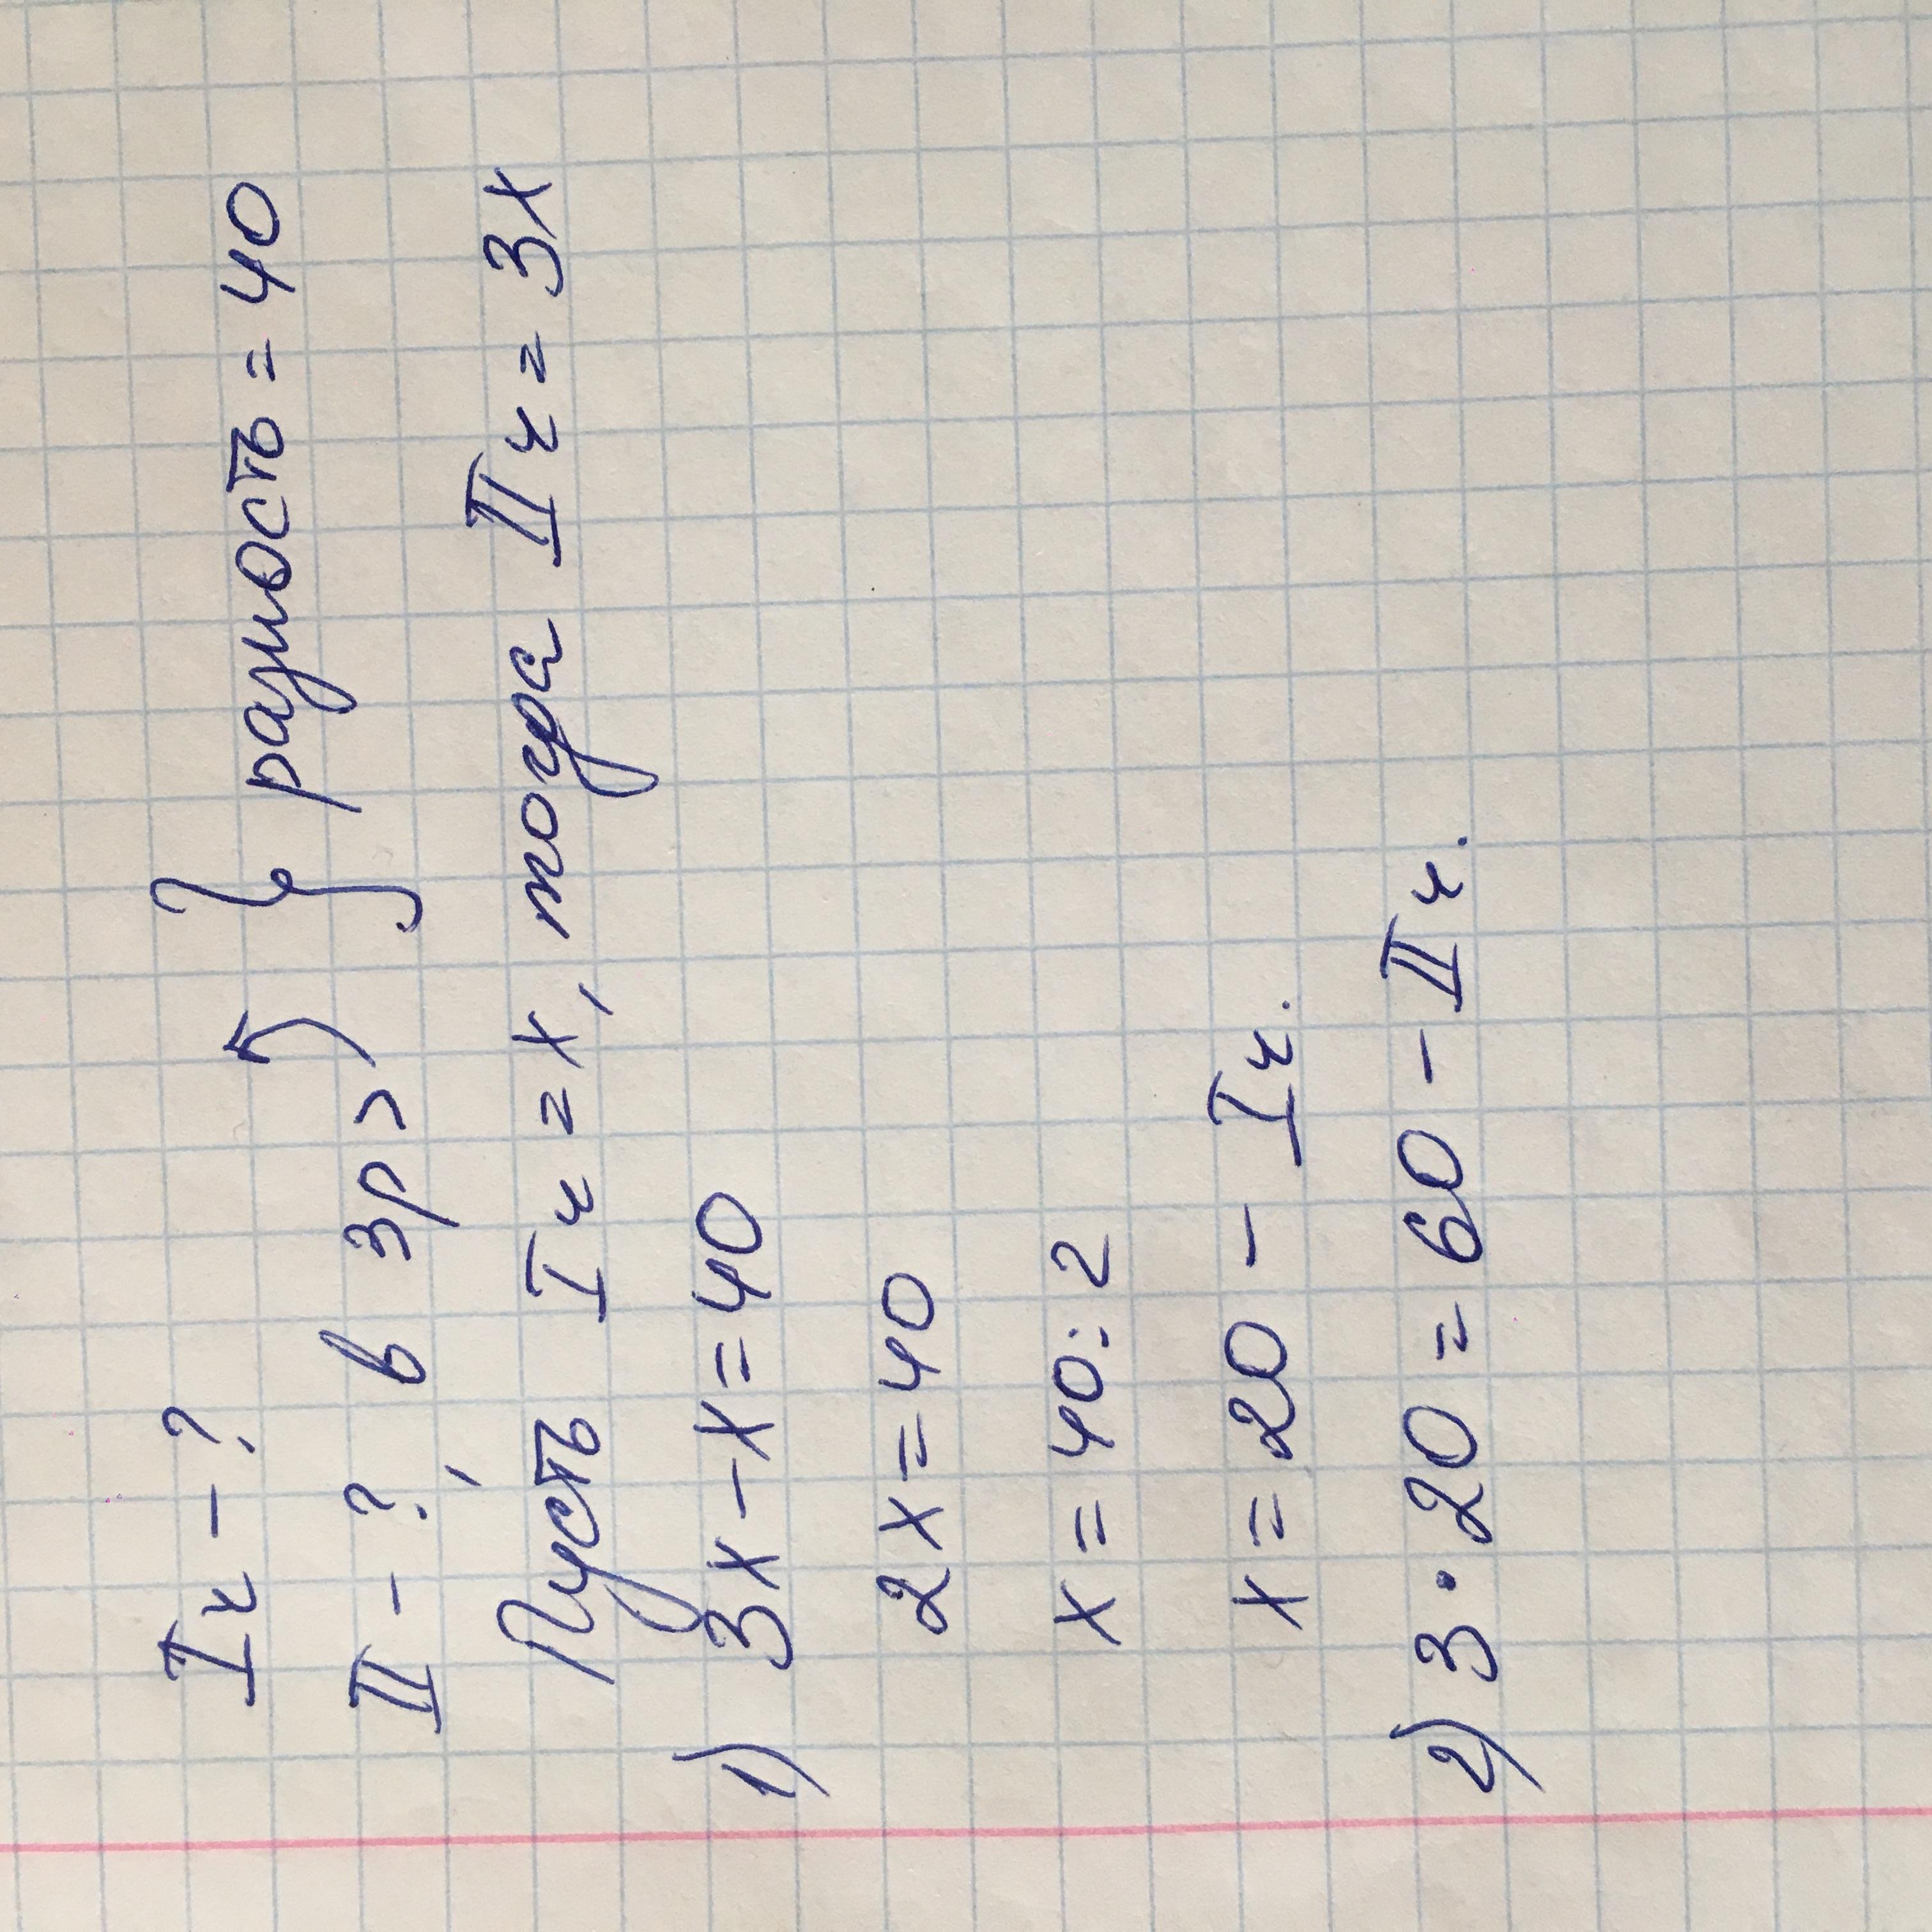 I ч - ?
II - ?, в 3р > } разность = 40
Пусть I ч = х, тогда II ч = 3х
1) 3х - х = 40
2х = 40
х = 40 : 2
х = 20 - I ч.
2) 3 · 20 = 60 - II ч.